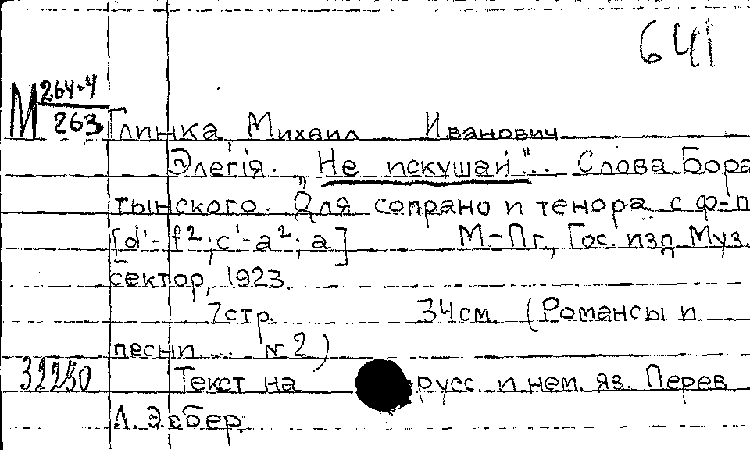 641
М 264-4
263
Глинка, Михаил Иванович
Элегія. „Не искушай“... Слова Бора
тынского. Для сопрано и тенора с ф-п
[d'-f²; c'-a²; a] М-Пг., Гос. изд. Муз.
сектор, 1923.
7 стр. 34 см. (Романсы и
песни... № 2)
32280 Текст на русс. и нем. яз. Перев
Л. Эсбер.